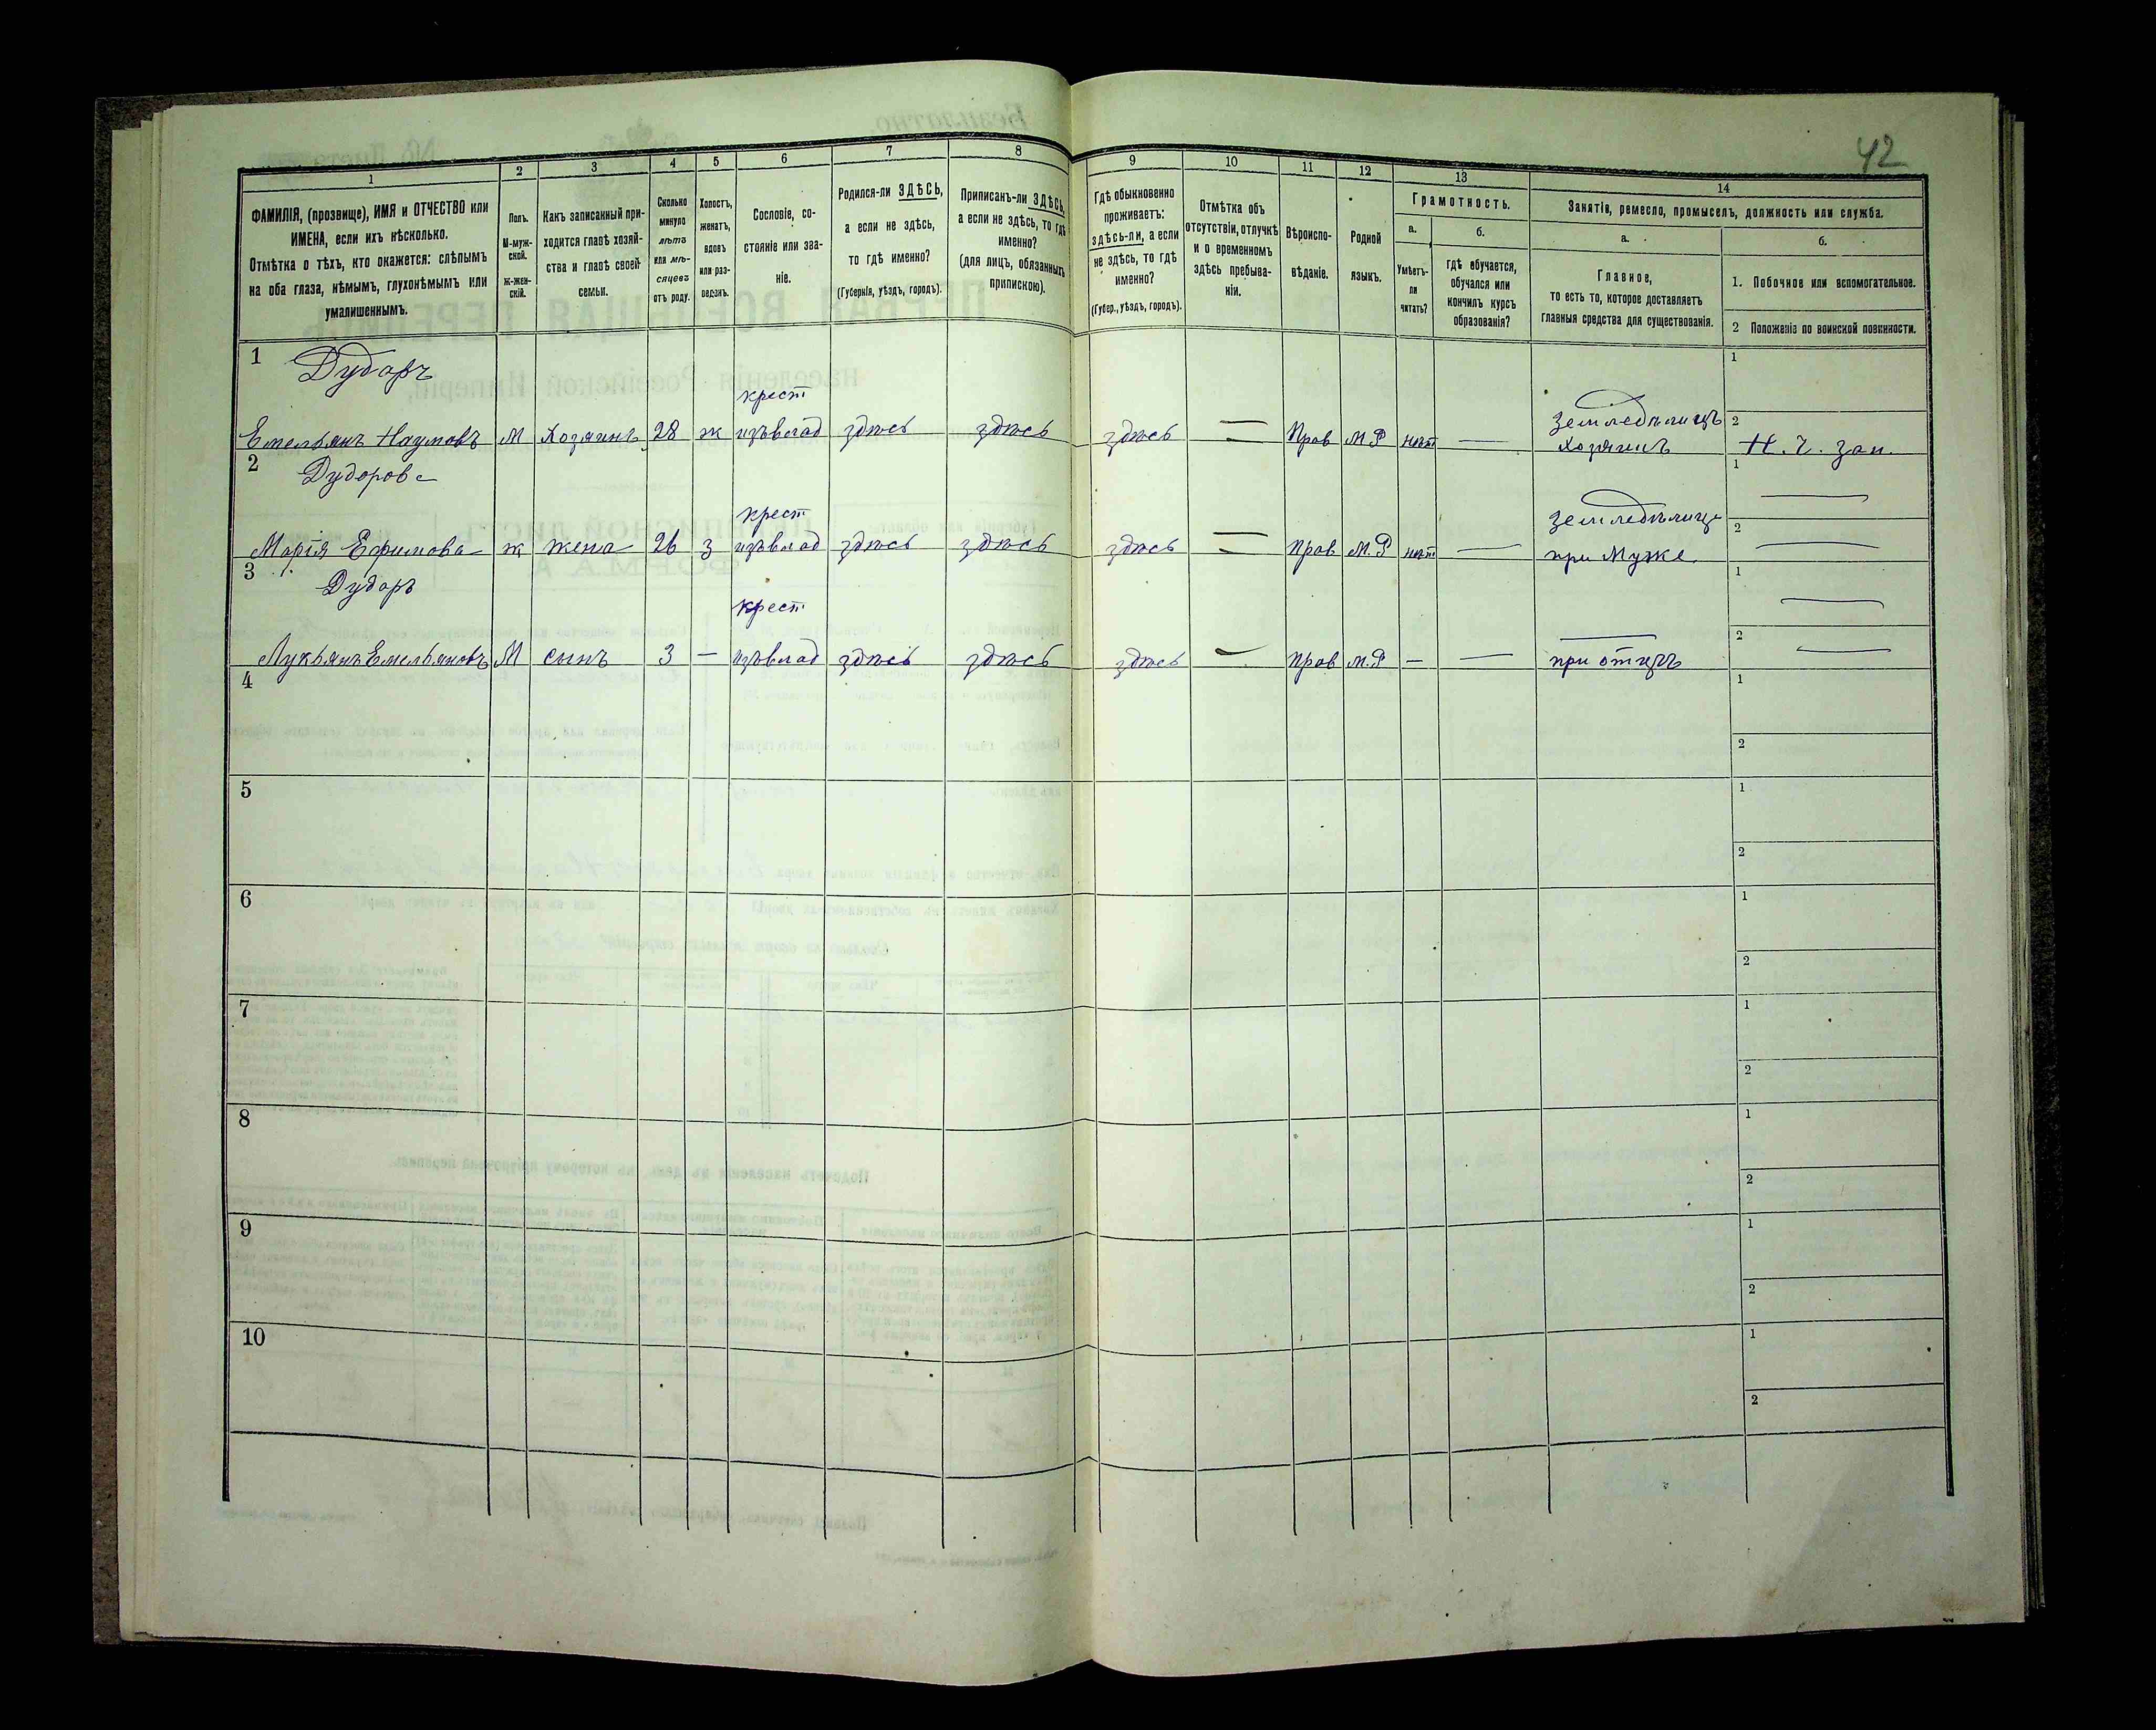 42
1 2 3 4 5 6 7 8 9 10 11 12 13 14
ФАМИЛІЯ, (прозвище), ИМЯ и ОТЧЕСТВО или
ИМЕНА, если ихъ нѣсколько.
Отмѣтка о тѣхъ, кто окажется: слѣпымъ
на оба глаза, нѣмымъ, глухонѣмымъ или
умалишеннымъ.
Полъ.
М-муж-
ской.
Ж-жен-
скій.
Какъ записанный при-
ходится главѣ хозяй-
ства и главѣ своей
семьи.
Сколько
минуло
лѣтъ
или мѣ-
сяцевъ
отъ роду.
Холостъ,
женатъ,
вдовъ
или раз-
веденъ.
Сословіе, со-
стояніе или зва-
ніе.
Родился-ли ЗДѢСЬ,
а если не здѣсь,
то гдѣ именно?
(Губернія, уѣздъ, городъ).
Приписанъ-ли ЗДѢСЬ,
а если не здѣсь, то гдѣ
именно?
(для лицъ, обязанныхъ
припискою).
Гдѣ обыкновенно
проживаетъ:
здѣсь-ли, а если
не здѣсь, то гдѣ
именно?
(Губер., уѣздъ, городъ).
Отмѣтка объ
отсутствіи, отлучкѣ
и о временномъ
здѣсь пребыва-
ніи.
Вѣроиспо-
вѣданіе.
Родной
языкъ.
Грамотность.
а.
Умѣетъ-
ли
читать?
б.
гдѣ обучается,
обучался или
кончилъ курсъ
образованія?
Занятіе, ремесло, промыселъ, должность или служба.
а.
Главное,
то есть то, которое доставляетъ
главныя средства для существованія.
б.
1. Побочное или вспомогательное.
2 Положеніе по воинской повинности.
1 Дударъ
крест
Землед�ѣлецъ
Емельянъ Наумовъ М Хозяинъ 28 ж изъвлад здѣсь здѣсь здѣсь = Прав М.Р нѣт — Хозяинъ
1
2 Н. Ч. зап.
2 Дударова
крест
Земледѣлица
Марія Ефимова ж жена 26 з изъвлад здѣсь здѣсь здѣсь = прав М.Р нѣт — при Муже
1 —
2 —
3 Дударъ
крест
Лукьянъ Емельяновъ М сынъ 3 — изъвлад здѣсь здѣсь здѣсь — прав М.Р — — при отцѣ
1 —
2 —
4
1
2
5
1
2
6
1
2
7
1
2
8
1
2
9
1
2
10
1
2